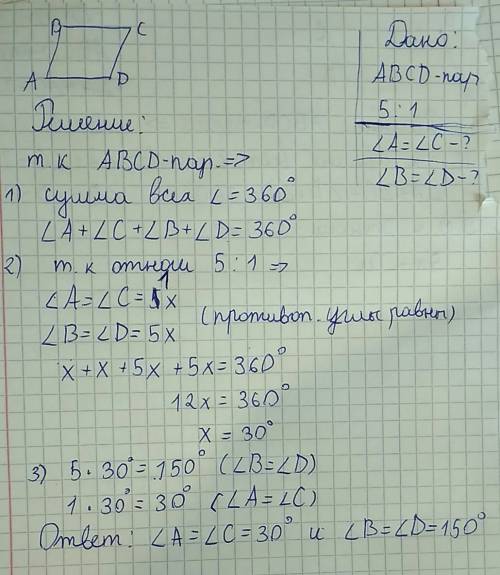 B C
A D
Дано:
ABCD-пар
5:1
∠A=∠C-?
∠B=∠D-?
Решение:
т.к ABCD-пар.=>
1) сумма всех ∠=360°
∠A+∠C+∠B+∠D=360°
2) т.к отнош 5:1=>
∠A=∠C=1x
∠B=∠D=5x
(противоп. углы равны)
x+x+5x+5x=360°
12x=360°
x=30°
3) 5·30°=150° (∠B=∠D)
1·30°=30° (∠A=∠C)
Ответ: ∠A=∠C=30° и ∠B=∠D=150°